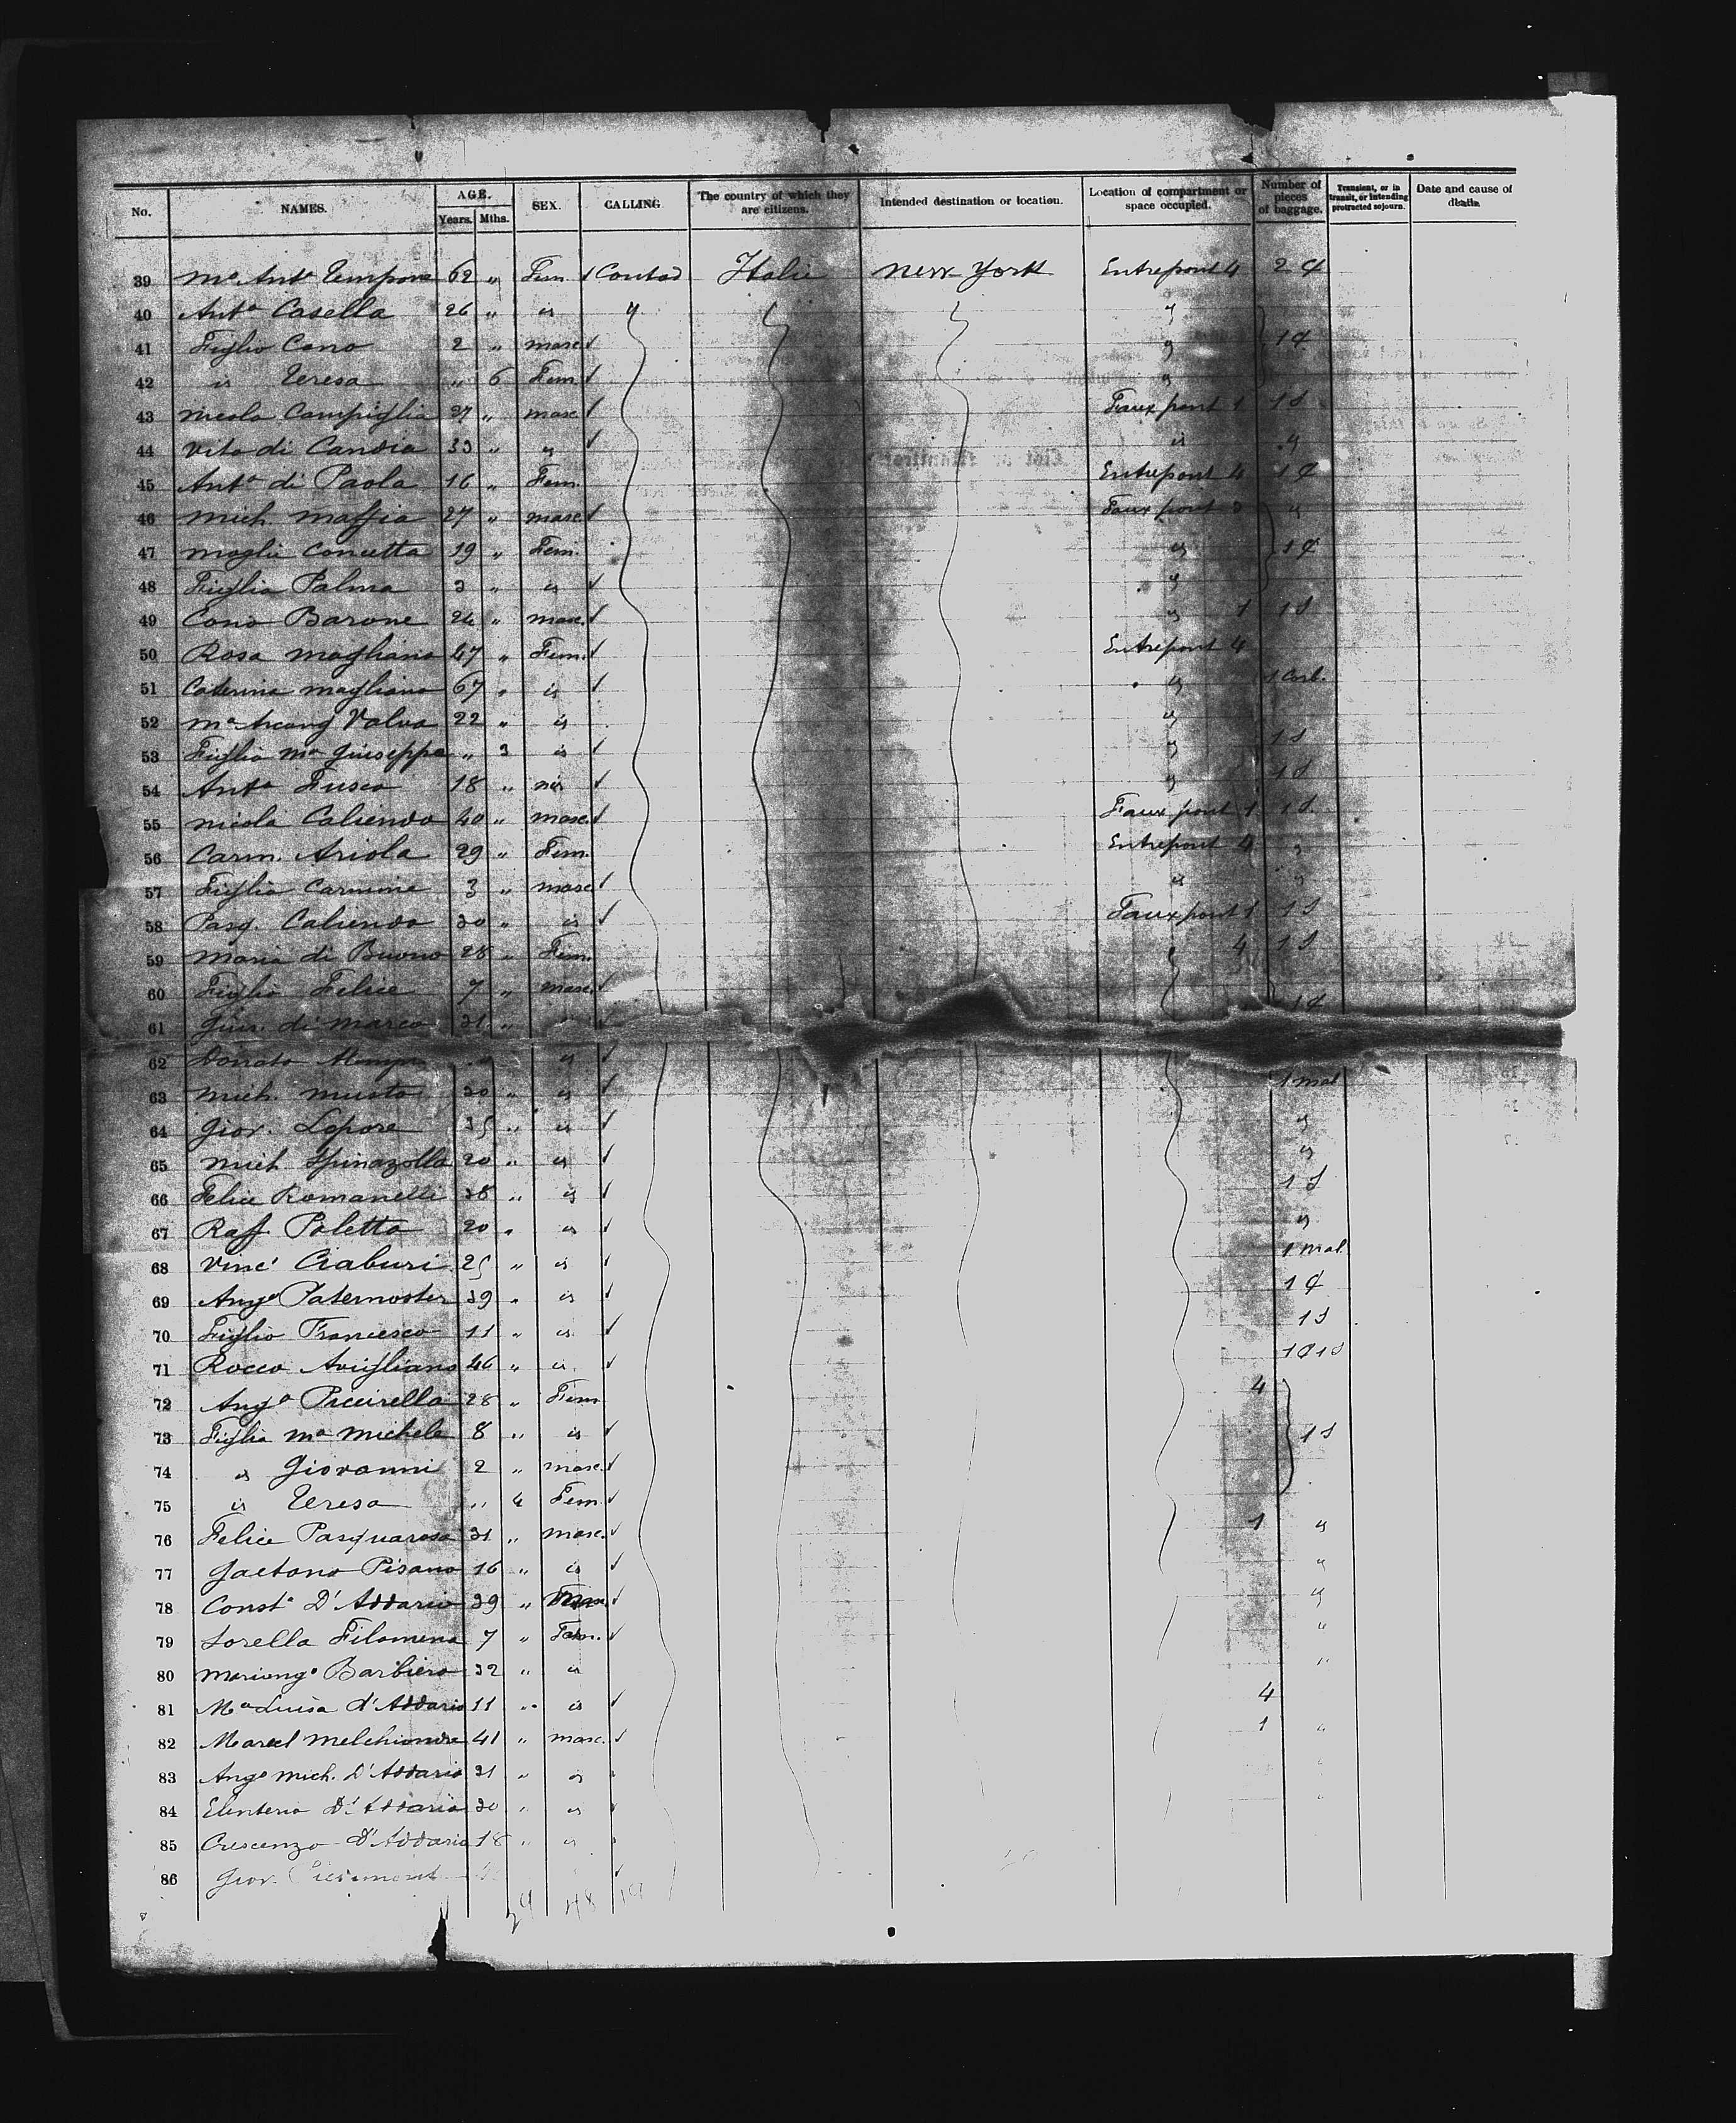 No. NAMES. AGE. Years. Mths. SEX. CALLING The country of which they are citizens. Intended destination or location. Location of compartment or space occupied. Number of pieces of baggage. Transient, or in transit, or intending protracted sojourn. Date and cause of death.
39 Ma Anta Tempone 62 " Fem Contad Italie New York Entrepont 4 2
40 Anta Casella 26 " is "
41 Figlio Cono 2 " masc 1
42 is Teresa " 6 Fem
43 Nicola Campiglia 27 " masc Faux pont 1 1 S
44 Vito di Candia 33 " is
45 Anta di Paola 16 " Fem. Entrepont 4 1
46 Mich. Maffia 27 " masc Faux pont 3
47 Moglie Concetta 19 " Fem. 1
48 Figlia Palma 3 " is
49 Cono Barone 24 " masc. 1 1 S
50 Rosa Magliano 47 " Fem. Entrepont 4
51 Caterina Magliano 67 " is 1 Corb.
52 Ma Arcang Valva 22 " is
53 Figlia Ma Giuseppa " 3 is 1 S
54 Anta Fusco 18 " is 1 S
55 Nicola Caliendo 40 " masc. Faux pont 1 1 S.
56 Carm. Ariola 29 " Fem. Entrepont 4
57 Figlio Carmine 3 " masc is
58 Pasq. Caliendo 30 " is Faux pont 1 1 S
59 Maria di Buono 28 " Fem. 4 1 S
60 Figlio Felice 7 " masc. 1
61 Gius. di Marco 31 "
62 Donato is
63 Mich. Musto 30 " is 1 mal
64 Giov. Lopore 35 " is
65 Mich Spinazolla 20 " is
66 Felice Romanelli 38 " is 1 S
67 Raf. Poletto 20 " is
68 Vinc Ciaburi 25 " is 1 mal.
69 Ango Paternoster 39 " is 1
70 Figlio Francesco 11 " is 1 S
71 Rocco Avigliano 46 " is 1 1 S
72 Anga Piccirella 28 " Fem 4
73 Figlia Ma Michela 8 " is 1 S
74 is Giovanni 2 " masc.
75 is Teresa " 4 Fem
76 Felice Pasquarosa 31 " masc. 1
77 Gaetano Pisano 16 " is
78 Consta D'Addario 39 " masc.
79 Sorella Filomena 7 " Fem. "
80 Mariango Barbiero 32 " is "
81 Ma Luisa d'Addario 11 " is 4
82 Marcel Melchiondre 41 " masc. 1 "
83 Ango Mich. D'Addario 31 " is
84 Elenterio D'Addario 30 " is
85 Crescenzo D'Addario 18 " is
86 Giov.
29 48 19